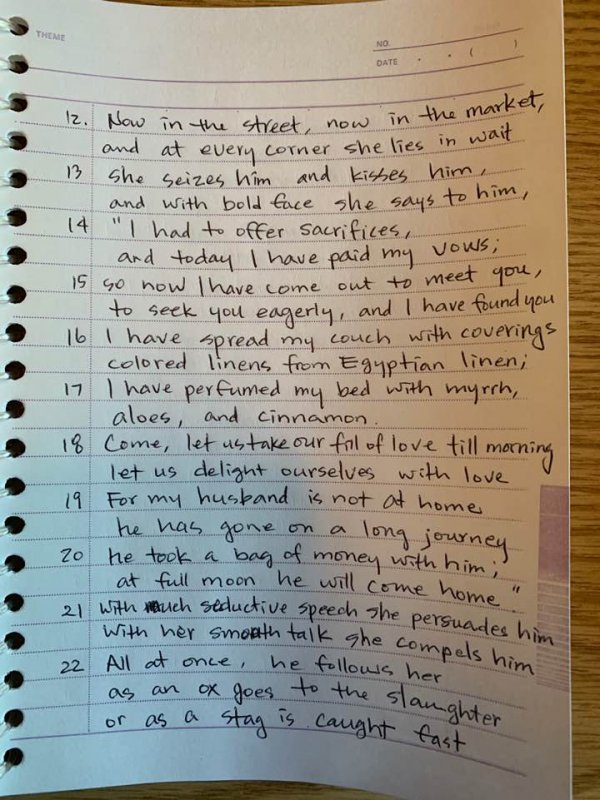 THEME
NO.
DATE . . ( )
12. Now in the street, now in the market,
and at every corner she lies in wait
13 she seizes him and kisses him,
and with bold face she says to him,
14 "I had to offer sacrifices,
and today I have paid my vows;
15 so now I have come out to meet you,
to seek you eagerly, and I have found you
16 I have spread my couch with coverings
colored linens from Egyptian linen;
17 I have perfumed my bed with myrrh,
aloes, and cinnamon.
18 Come, let us take our fill of love till morning
let us delight ourselves with love
19 For my husband is not at home
he has gone on a long journey
20 he took a bag of money with him;
at full moon he will come home."
21 with much seductive speech she persuades him
with her smooth talk she compels him
22 All at once, he follows her
as an ox goes to the slaughter
or as a stag is caught fast